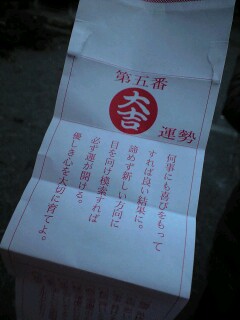 第五番
大吉
運勢
何事にも喜びをもって
すれば良い結果に。
諦めず新しい方向に
目を向け模索すれば
必ず運が開ける。
優しき心を大切に育てよ。